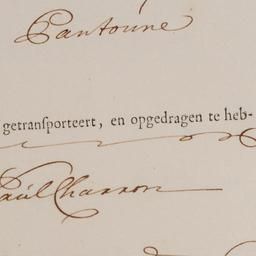 Pantoúne
getransporteert, en opgedragen te heb-
Paúl Charron